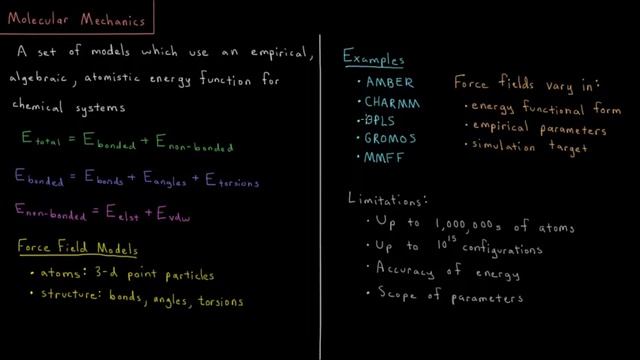 Molecular Mechanics
A set of models which use an empirical,
algebraic, atomistic energy function for
chemical systems
E total = E bonded + E non-bonded
E bonded = E bonds + E angles + E torsions
E non-bonded = E elst + E vdw
Force Field Models
• atoms: 3-d point particles
• structure: bonds, angles, torsions
Examples
• AMBER
• CHARMM
• OPLS
• GROMOS
• MMFF
Force fields vary in:
• energy functional form
• empirical parameters
• simulation target
Limitations:
• Up to 1,000,000s of atoms
• Up to 10^15 configurations
• Accuracy of energy
• Scope of parameters